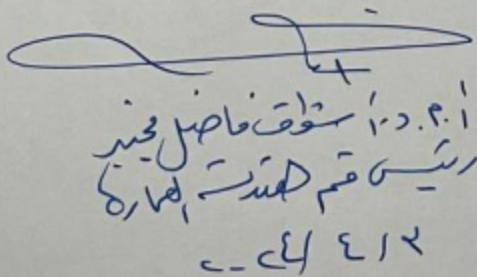 أ.م.د. أشواق فاضل مجيد
رئيس قسم هندسة العمارة
٢٠٢٤/٤/٣